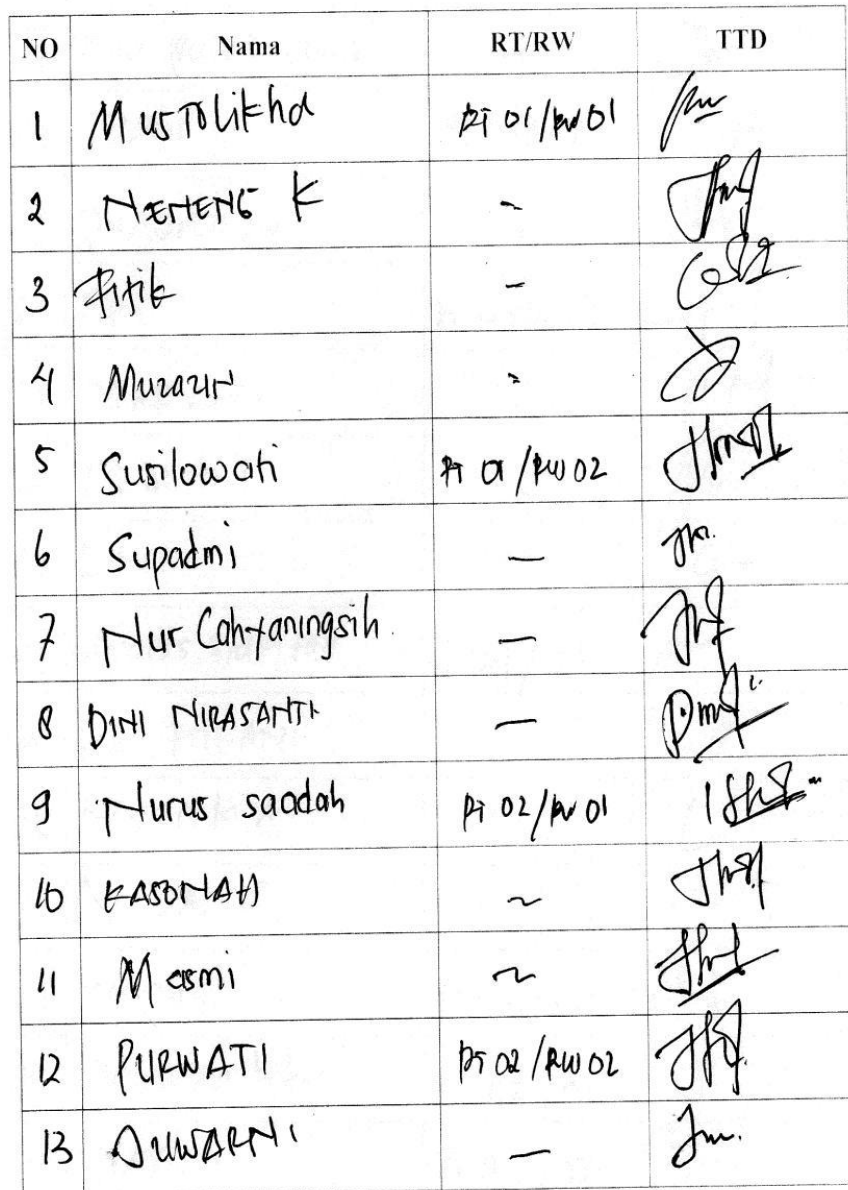 NO Nama RT/RW TTD
1 Mustolikha RT 01/RW 01
2 NENENG K -
3 Titik -
4 Muzazin -
5 Susilowati RT 01/RW 02
6 Supadmi -
7 Nur Cahyaningsih -
8 DINI NIRASANTI -
9 Nurus saadah RT 02/RW 01
10 KASONAH ~
11 Masmi ~
12 PURWATI RT 02/RW 02
13 SUWARNI -